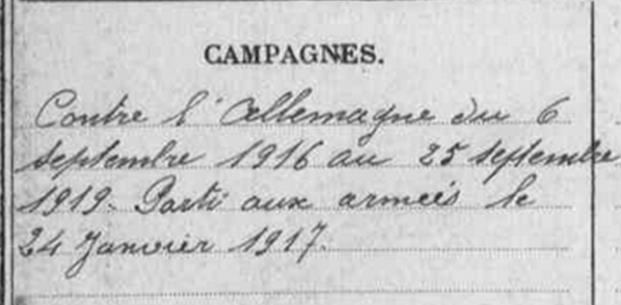 CAMPAGNES.
Contre l'Allemagne du 6
septembre 1916 au 25 septembre
1919. Parti aux armées le
24 Janvier 1917.